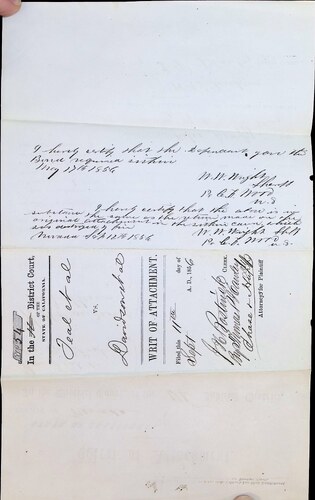 I hereby certify that the Defendants gave the
Bond required within
May 17th 1856
W. W. Wright
Sheriff
By C. F. Wood
U.S.
I hereby certify that the above is in
substance the same as the return made on the
original attachment in the within case which
was destroyed by fire
Nevada Sept 12th 1856
W. W. Wright Shff
By C. F. Wood
U.S.
No. 54
In the District Court,
OF THE
STATE OF CALIFORNIA.
Teal et al
vs.
Davidson et al
WRIT OF ATTACHMENT.
Filed this 11th day of
Sept A. D., 1856
CLERK.
By
Chase &
Attorney for Plaintiff